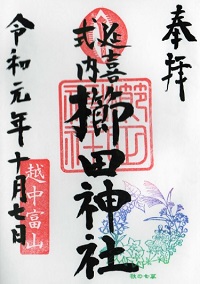 奉拝
延喜
式内
櫛田神社
令和元年十月七日
越中富山